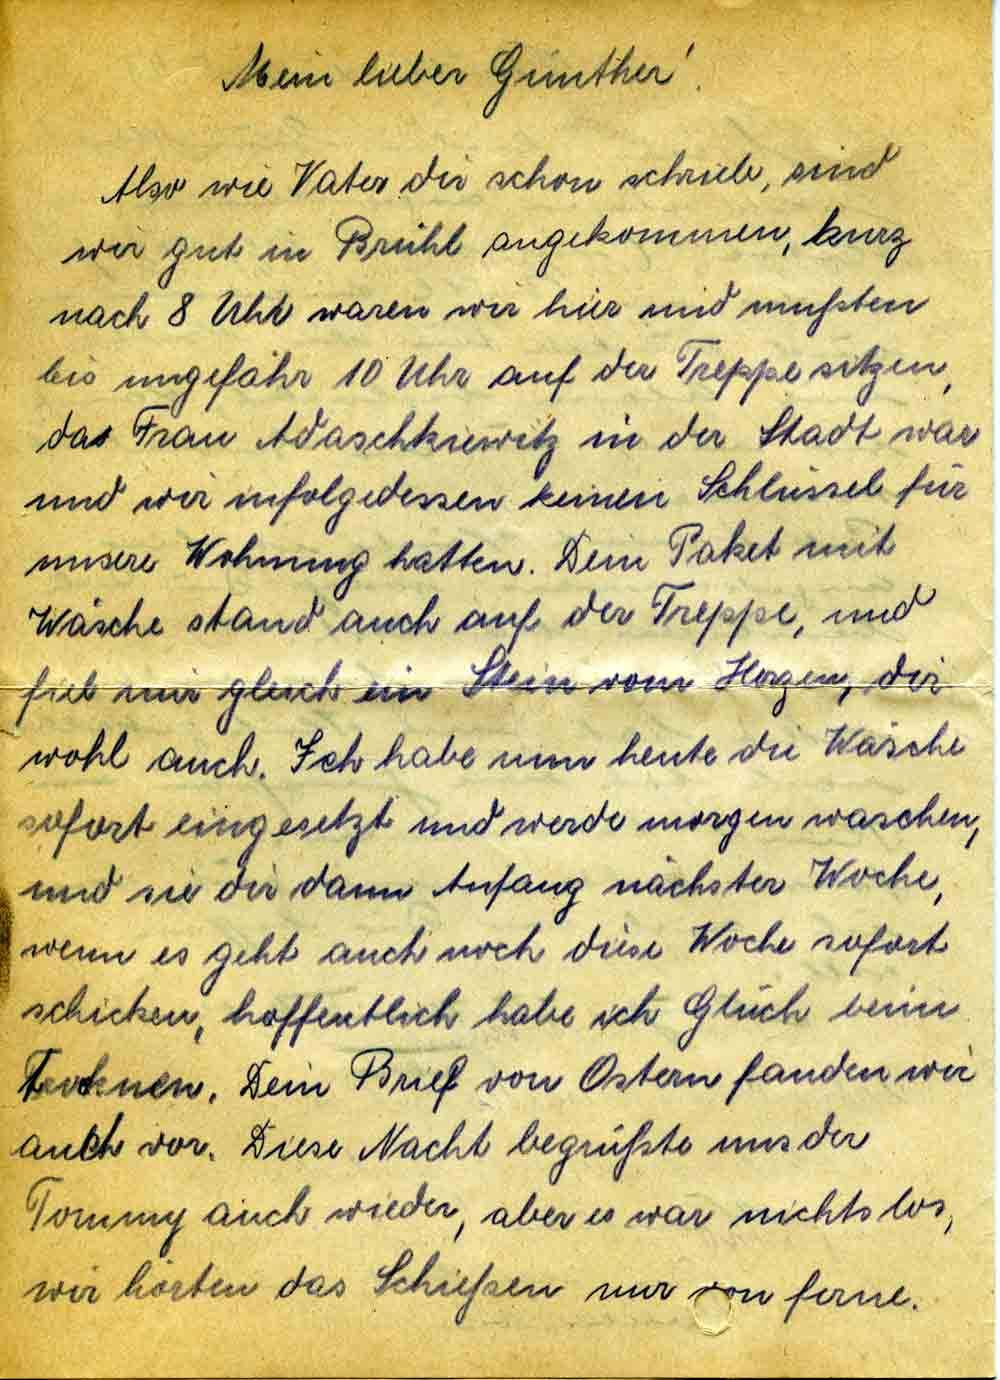 Mein lieber Günther!
Also wie Vater dir schon schrieb, sind
wir gut in Brühl angekommen, kurz
nach 8 Uhr waren wir hier und mußten
bis ungefähr 10 Uhr auf der Treppe sitzen,
das Frau Adaschkiewitz in der Stadt war
und wir infolgedessen keinen Schlüssel für
unsere Wohnung hatten. Dein Paket mit
Wäsche stand auch auf der Treppe, und
fiel mir gleich ein Stein vom Herzen, dir
wohl auch. Ich habe nun heute die Wäsche
sofort eingesetzt und werde morgen waschen,
und sie dir dann Anfang nächster Woche,
wenn es geht auch noch diese Woche sofort
schicken, hoffentlich habe ich Glück beim
Trocknen. Dein Brief von Ostern fanden wir
auch vor. Diese Nacht begrüßte uns der
Tommy auch wieder, aber es war nichts los,
wir hörten das Schießen nur von ferne.